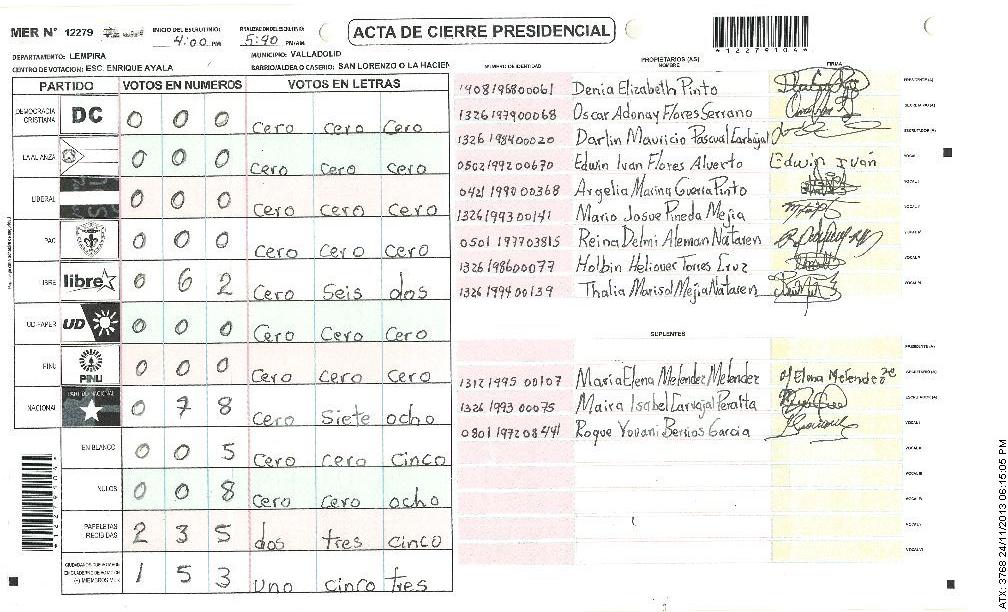 MER N° 12279
INICIO DEL ESCRUTINIO: 4:00 PM
FINALIZACION DEL ESCRUTINIO: 5:40 PM/AM
ACTA DE CIERRE PRESIDENCIAL
*122791044*
DEPARTAMENTO: LEMPIRA
MUNICIPIO: VALLADOLID
CENTRO DE VOTACION: ESC. ENRIQUE AYALA
BARRIO/ALDEA O CASERIO: SAN LORENZO O LA HACIEN
PARTIDO VOTOS EN NUMEROS VOTOS EN LETRAS
DEMOCRACIA CRISTIANA DC 0 0 0 Cero Cero Cero
LA ALIANZA 0 0 0 Cero Cero Cero
LIBERAL 0 0 0 Cero Cero Cero
PAC 0 0 0 Cero Cero Cero
LIBRE libre 0 6 2 Cero Seis dos
UD-FAPER UD 0 0 0 Cero Cero Cero
PINU PINU 0 0 0 Cero Cero Cero
NACIONAL PARTIDO NACIONAL 0 7 8 Cero Siete ocho
EN BLANCO 0 0 5 Cero Cero cinco
NULOS 0 0 8 Cero Cero ocho
PAPELETAS RECIBIDAS 2 3 5 dos tres cinco
1 5 3 Uno cinco tres
PROPIETARIOS (AS)
NUMERO DE IDENTIDAD NOMBRE FIRMA
1408196800061 Denia Elizabeth Pinto PRESIDENTE(A)
1326197900068 Oscar Adonay Flores Serrano SECRETARIO(A)
1326198400020 Darlin Mauricio Pascual Carbajal ESCRUTADOR(A)
0502199200670 Edwin Ivan Flores Alverto Edwin Iván VOCAL I
0421199000368 Argelia Marina Guerra Pinto
1326199300141 Mario Josue Pineda Mejia
0501197703815 Reina Delmi Aleman Nataren
1326198600077 Holbin Heliover Torres Cruz
1326199400139 Thalia Marisol Mejia Nataren
SUPLENTES
PRESIDENTE(A)
1312199500107 Maria Elena Melendez Melendez SECRETARIO(A)
1326199300075 Maira Isabel Carvajal Peralta ESCRUTADOR(A)
0801197208441 Roque Yovani Berrios Garcia VOCAL I
ATX: 3768 24/11/2013 06:15:05 PM